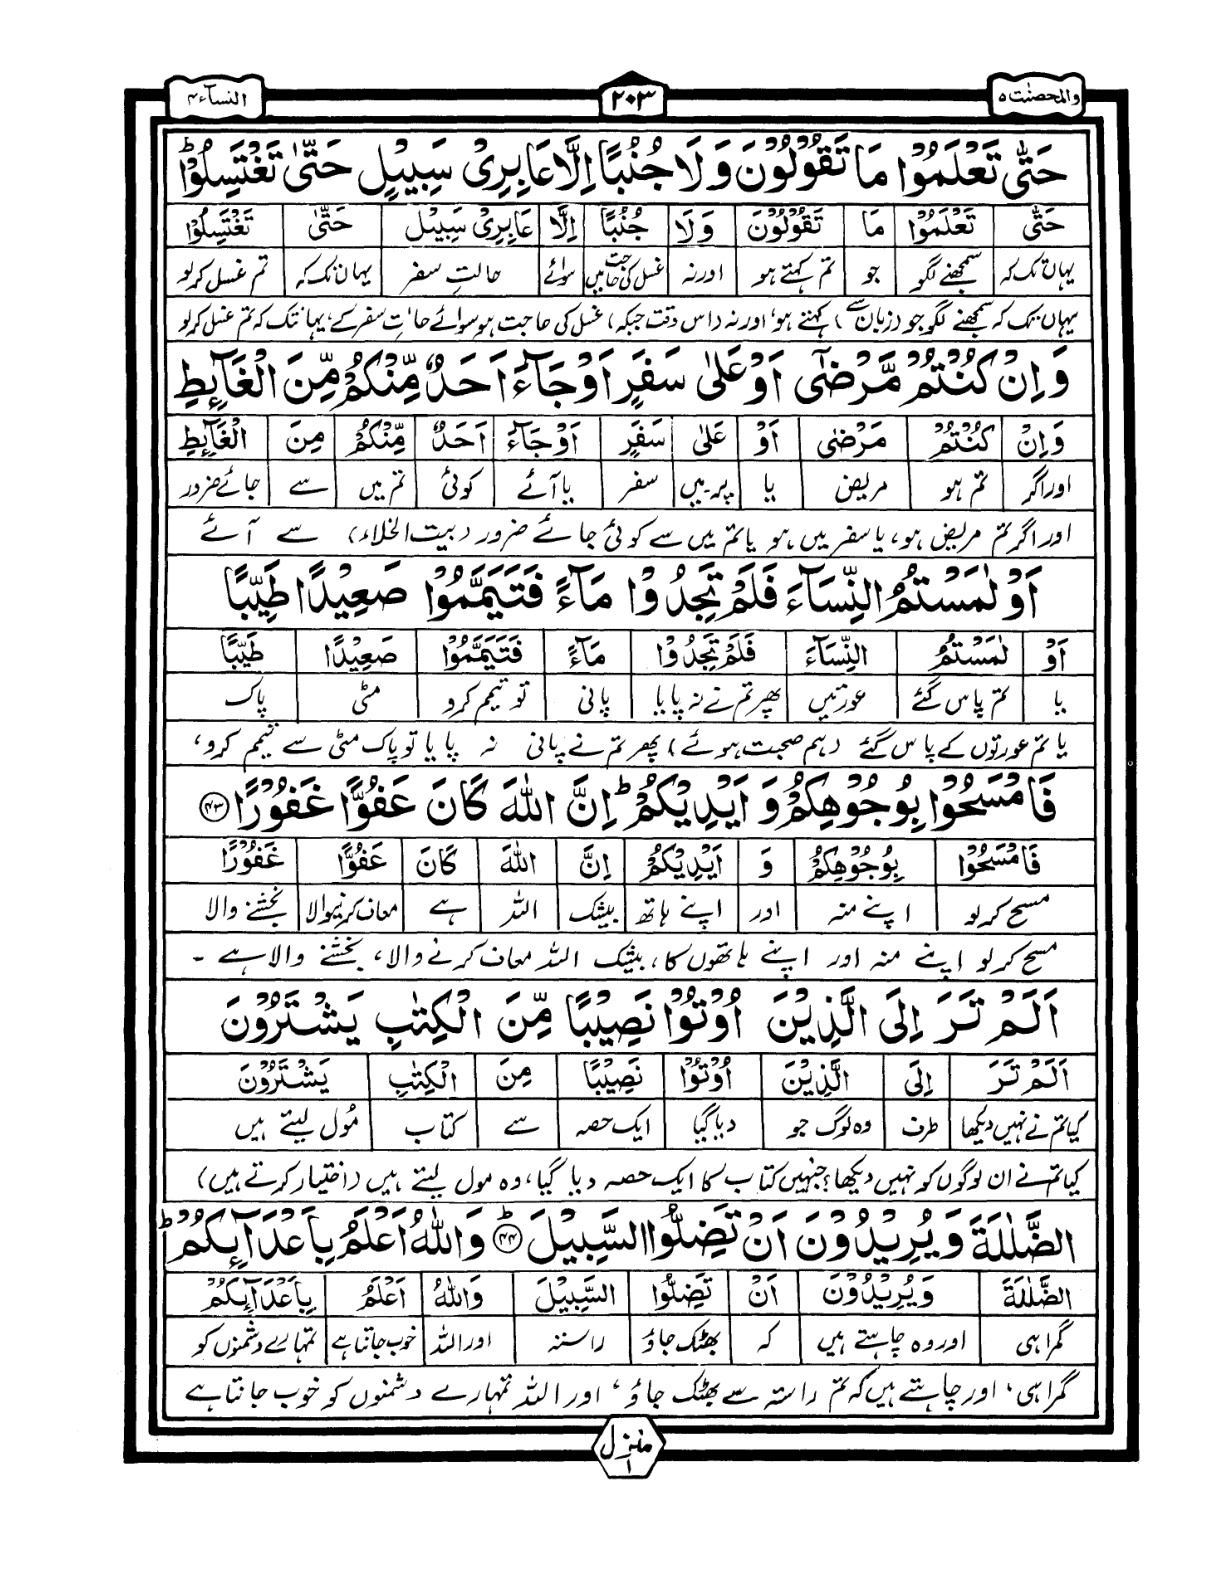 والمحصنٰت ۵
۲۰۳
النسآء ۴
حَتّٰى تَعْلَمُوْا مَا تَقُوْلُوْنَ وَلَا جُنُبًا اِلَّا عَابِرِىْ سَبِيْلٍ حَتّٰى تَغْتَسِلُوْا ؕ
حَتّٰى تَعْلَمُوْا مَا تَقُوْلُوْنَ وَلَا جُنُبًا اِلَّا عَابِرِىْ سَبِيْل حَتّٰى تَغْتَسِلُوْا
یہاں تک کہ سمجھنے لگو جو تم کہتے ہو اور نہ غسل کی حاجت میں سوائے حالتِ سفر یہاں تک کہ تم غسل کرلو
یہاں تک کہ سمجھنے لگو جو (زبان سے) کہتے ہو، اور نہ (اس وقت جبکہ) غسل کی حاجت ہو سوائے حالتِ سفر کے، یہاں تک کہ تم غسل کرلو
وَاِنْ كُنْتُمْ مَّرْضٰٓى اَوْ عَلٰى سَفَرٍ اَوْ جَآءَ اَحَدٌ مِّنْكُمْ مِّنَ الْغَآئِطِ
وَاِنْ كُنْتُمْ مَرْضٰى اَوْ عَلٰى سَفَرٍ اَوْ جَآءَ اَحَدٌ مِّنْكُمْ مِنَ الْغَآئِطِ
اور اگر تم ہو مریض یا پر۔میں سفر یا آئے کوئی تم میں سے جائے ضرور
اور اگر تم مریض ہو، یا سفر میں ہو یا تم میں سے کوئی جائے ضرور (بیت الخلاء) سے آئے
اَوْ لٰمَسْتُمُ النِّسَآءَ فَلَمْ تَجِدُوْا مَآءً فَتَيَمَّمُوْا صَعِيْدًا طَيِّبًا
اَوْ لٰمَسْتُمُ النِّسَآءَ فَلَمْ تَجِدُوْا مَآءً فَتَيَمَّمُوْا صَعِيْدًا طَيِّبًا
یا تم پاس گئے عورتیں پھر تم نے نہ پایا پانی تو تیمم کرو مٹی پاک
یا تم عورتوں کے پاس گئے (ہم صحبت ہوئے) پھر تم نے پانی نہ پایا تو پاک مٹی سے تیمم کرو،
فَامْسَحُوْا بِوُجُوْهِكُمْ وَ اَيْدِيْكُمْ ؕ اِنَّ اللّٰهَ كَانَ عَفُوًّا غَفُوْرًا ۴۳
فَامْسَحُوْا بِوُجُوْهِكُمْ وَ اَيْدِيْكُمْ اِنَّ اللّٰهَ كَانَ عَفُوًّا غَفُوْرًا
مسح کرلو اپنے منہ اور اپنے ہاتھ بیشک اللہ ہے معاف کرنیوالا بخشنے والا
مسح کرلو اپنے منہ اور اپنے ہاتھوں کا، بیشک اللہ معاف کرنے والا، بخشنے والا ہے ۔
اَلَمْ تَرَ اِلَى الَّذِيْنَ اُوْتُوْا نَصِيْبًا مِّنَ الْكِتٰبِ يَشْتَرُوْنَ
اَلَمْ تَرَ اِلَى الَّذِيْنَ اُوْتُوْا نَصِيْبًا مِنَ الْكِتٰبِ يَشْتَرُوْنَ
کیا تم نے نہیں دیکھا طرف وہ لوگ جو دیا گیا ایک حصہ سے کتاب مُول لیتے ہیں
کیا تم نے ان لوگوں کو نہیں دیکھا؟ جنہیں کتاب کا ایک حصہ دیا گیا، وہ مول لیتے ہیں (اختیار کرتے ہیں)
الضَّلٰلَةَ وَيُرِيْدُوْنَ اَنْ تَضِلُّوا السَّبِيْلَ ؕ ۴۴ وَاللّٰهُ اَعْلَمُ بِاَعْدَآئِكُمْ ؕ
الضَّلٰلَةَ وَيُرِيْدُوْنَ اَنْ تَضِلُّوا السَّبِيْلَ وَاللّٰهُ اَعْلَمُ بِاَعْدَآئِكُمْ
گمراہی اور وہ چاہتے ہیں کہ بھٹک جاؤ راستہ اور اللہ خوب جانتا ہے تمہارے دشمنوں کو
گمراہی، اور چاہتے ہیں کہ تم راستہ سے بھٹک جاؤ، اور اللہ تمہارے دشمنوں کو خوب جانتا ہے
منزل ۱